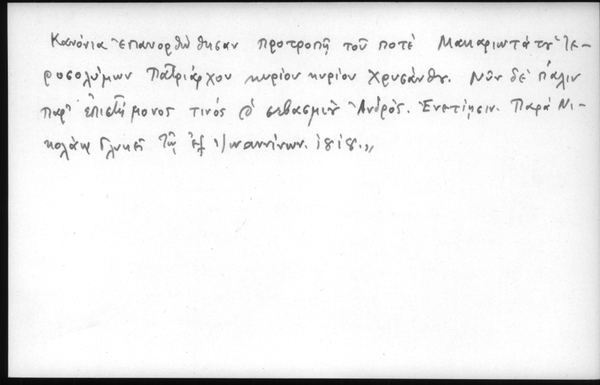 Κανόνια Ἐπανορθώθησαν προτροπῇ τοῦ ποτὲ Μακαριωτάτου Ἱε-
ροσολύμων Πατριάρχου κυρίου κυρίου Χρυσάνθου. Νῦν δὲ πάλιν
παρ' ἐπιστήμονος τινός σεβασμίου Ἀνδρός. Ἐνετίῃσιν. Παρὰ Νι-
κολάῳ Γλυκεῖ τῷ ἐξ Ἰωαννίνων. 1818.,,